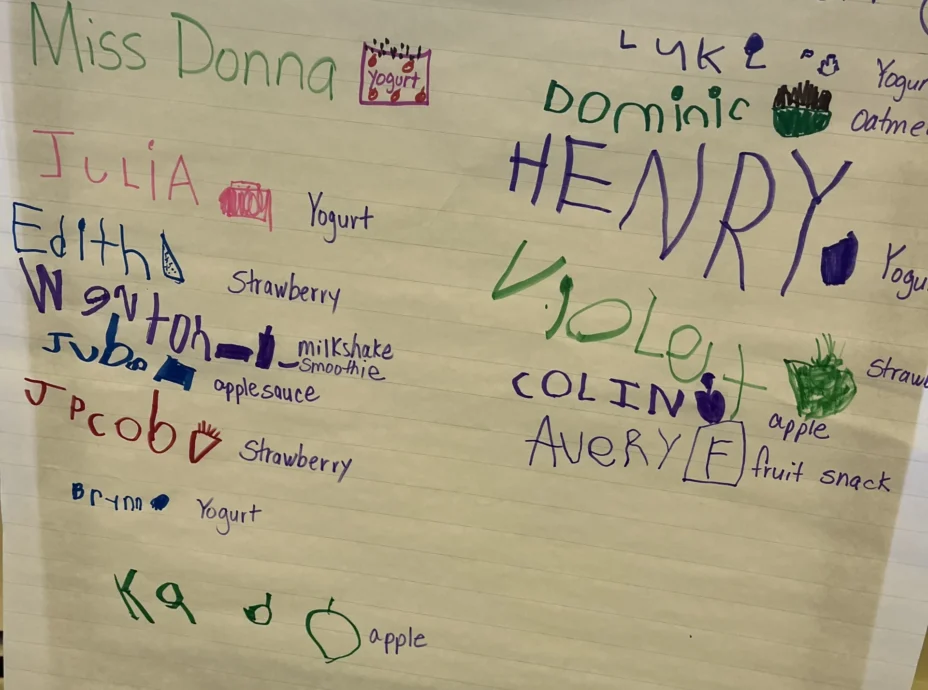 Miss Donna Yogurt
JULiA Yogurt
Edith Strawberry
Weston milkshake
smoothie
Jubo applesauce
Jacob Strawberry
Brynn Yogurt
Ka d apple
LUKE Yogur
DOminic Oatme
HENRY. Yogu
VioLeT Straw
COLIN apple
AVeRY F fruit snack